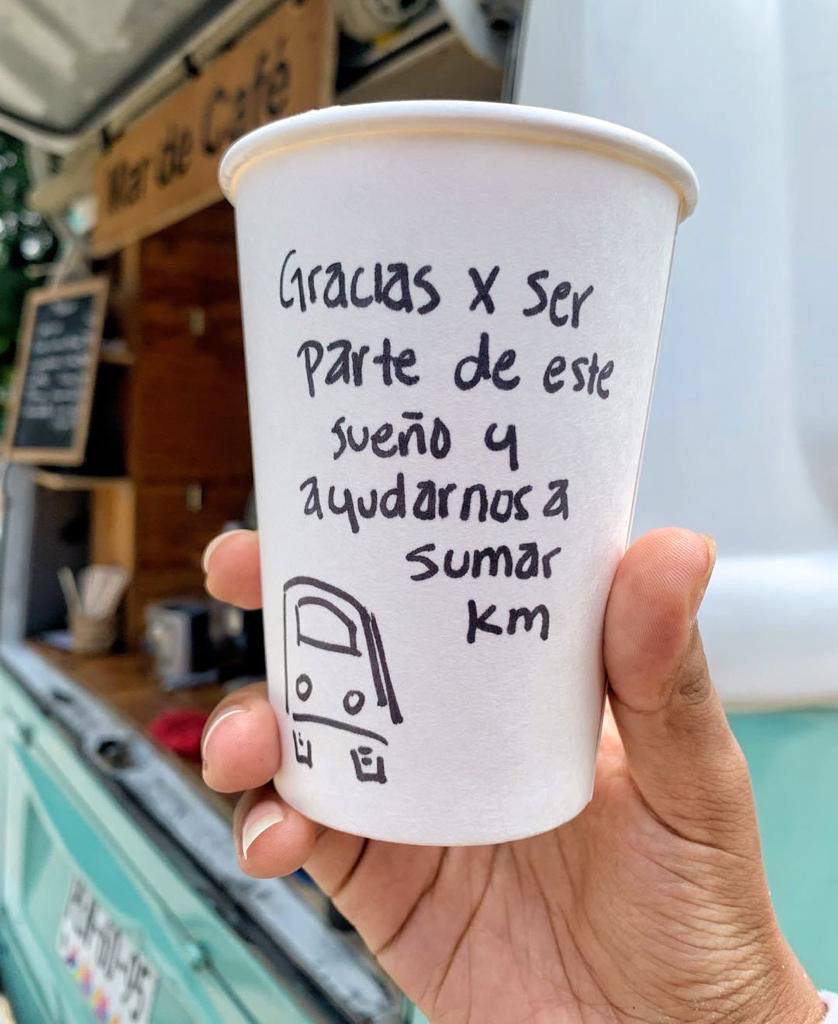 Mar de Café
Gracias x ser
parte de este
sueño y
ayudarnos a
sumar
km